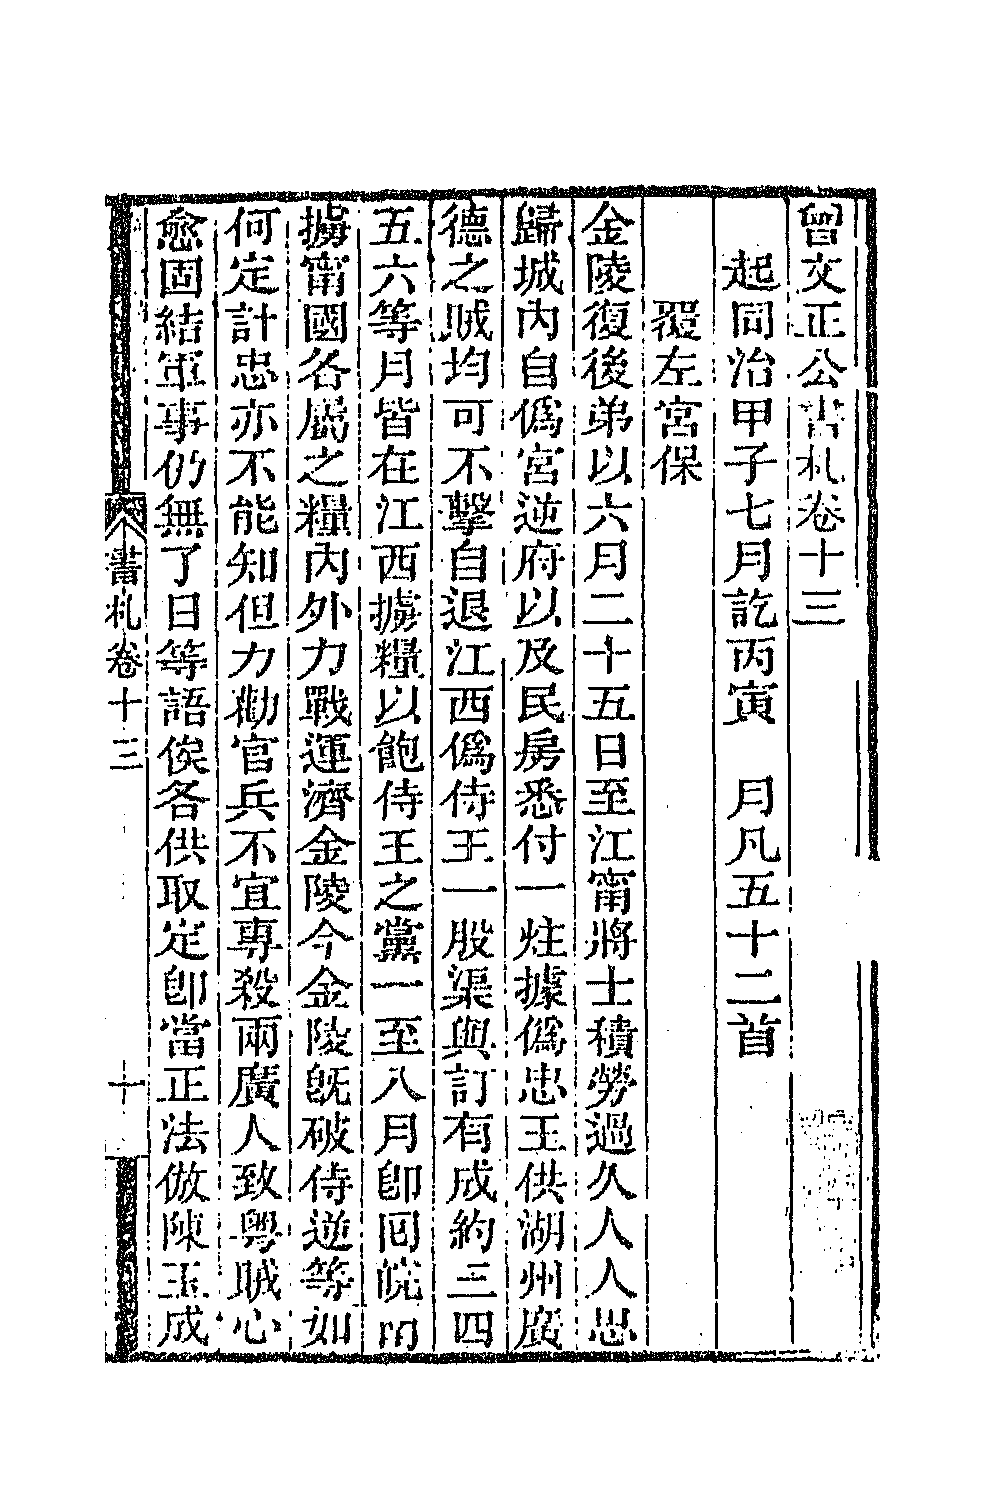 曾文正公書札卷十三
起同治甲子七月訖丙寅　月凡五十二首
覆左宮保
金陵復後弟以六月二十五日至江甯將士積勞過久人人思
歸城內自僞宮逆府以及民房悉付一炷據僞忠王供湖州廣
德之賊均可不擊自退江西僞侍王一股渠與訂有成約三四
五六等月皆在江西擄糧以飽侍王之黨一至八月卽囘皖南
擄甯國各屬之糧內外力戰運濟金陵今金陵旣破侍逆等如
何定計忠亦不能知但力勸官兵不宜專殺兩廣人致粵賊心
愈固結軍事仍無了日等語俟各供取定卽當正法倣陳玉成
書札卷十三
十